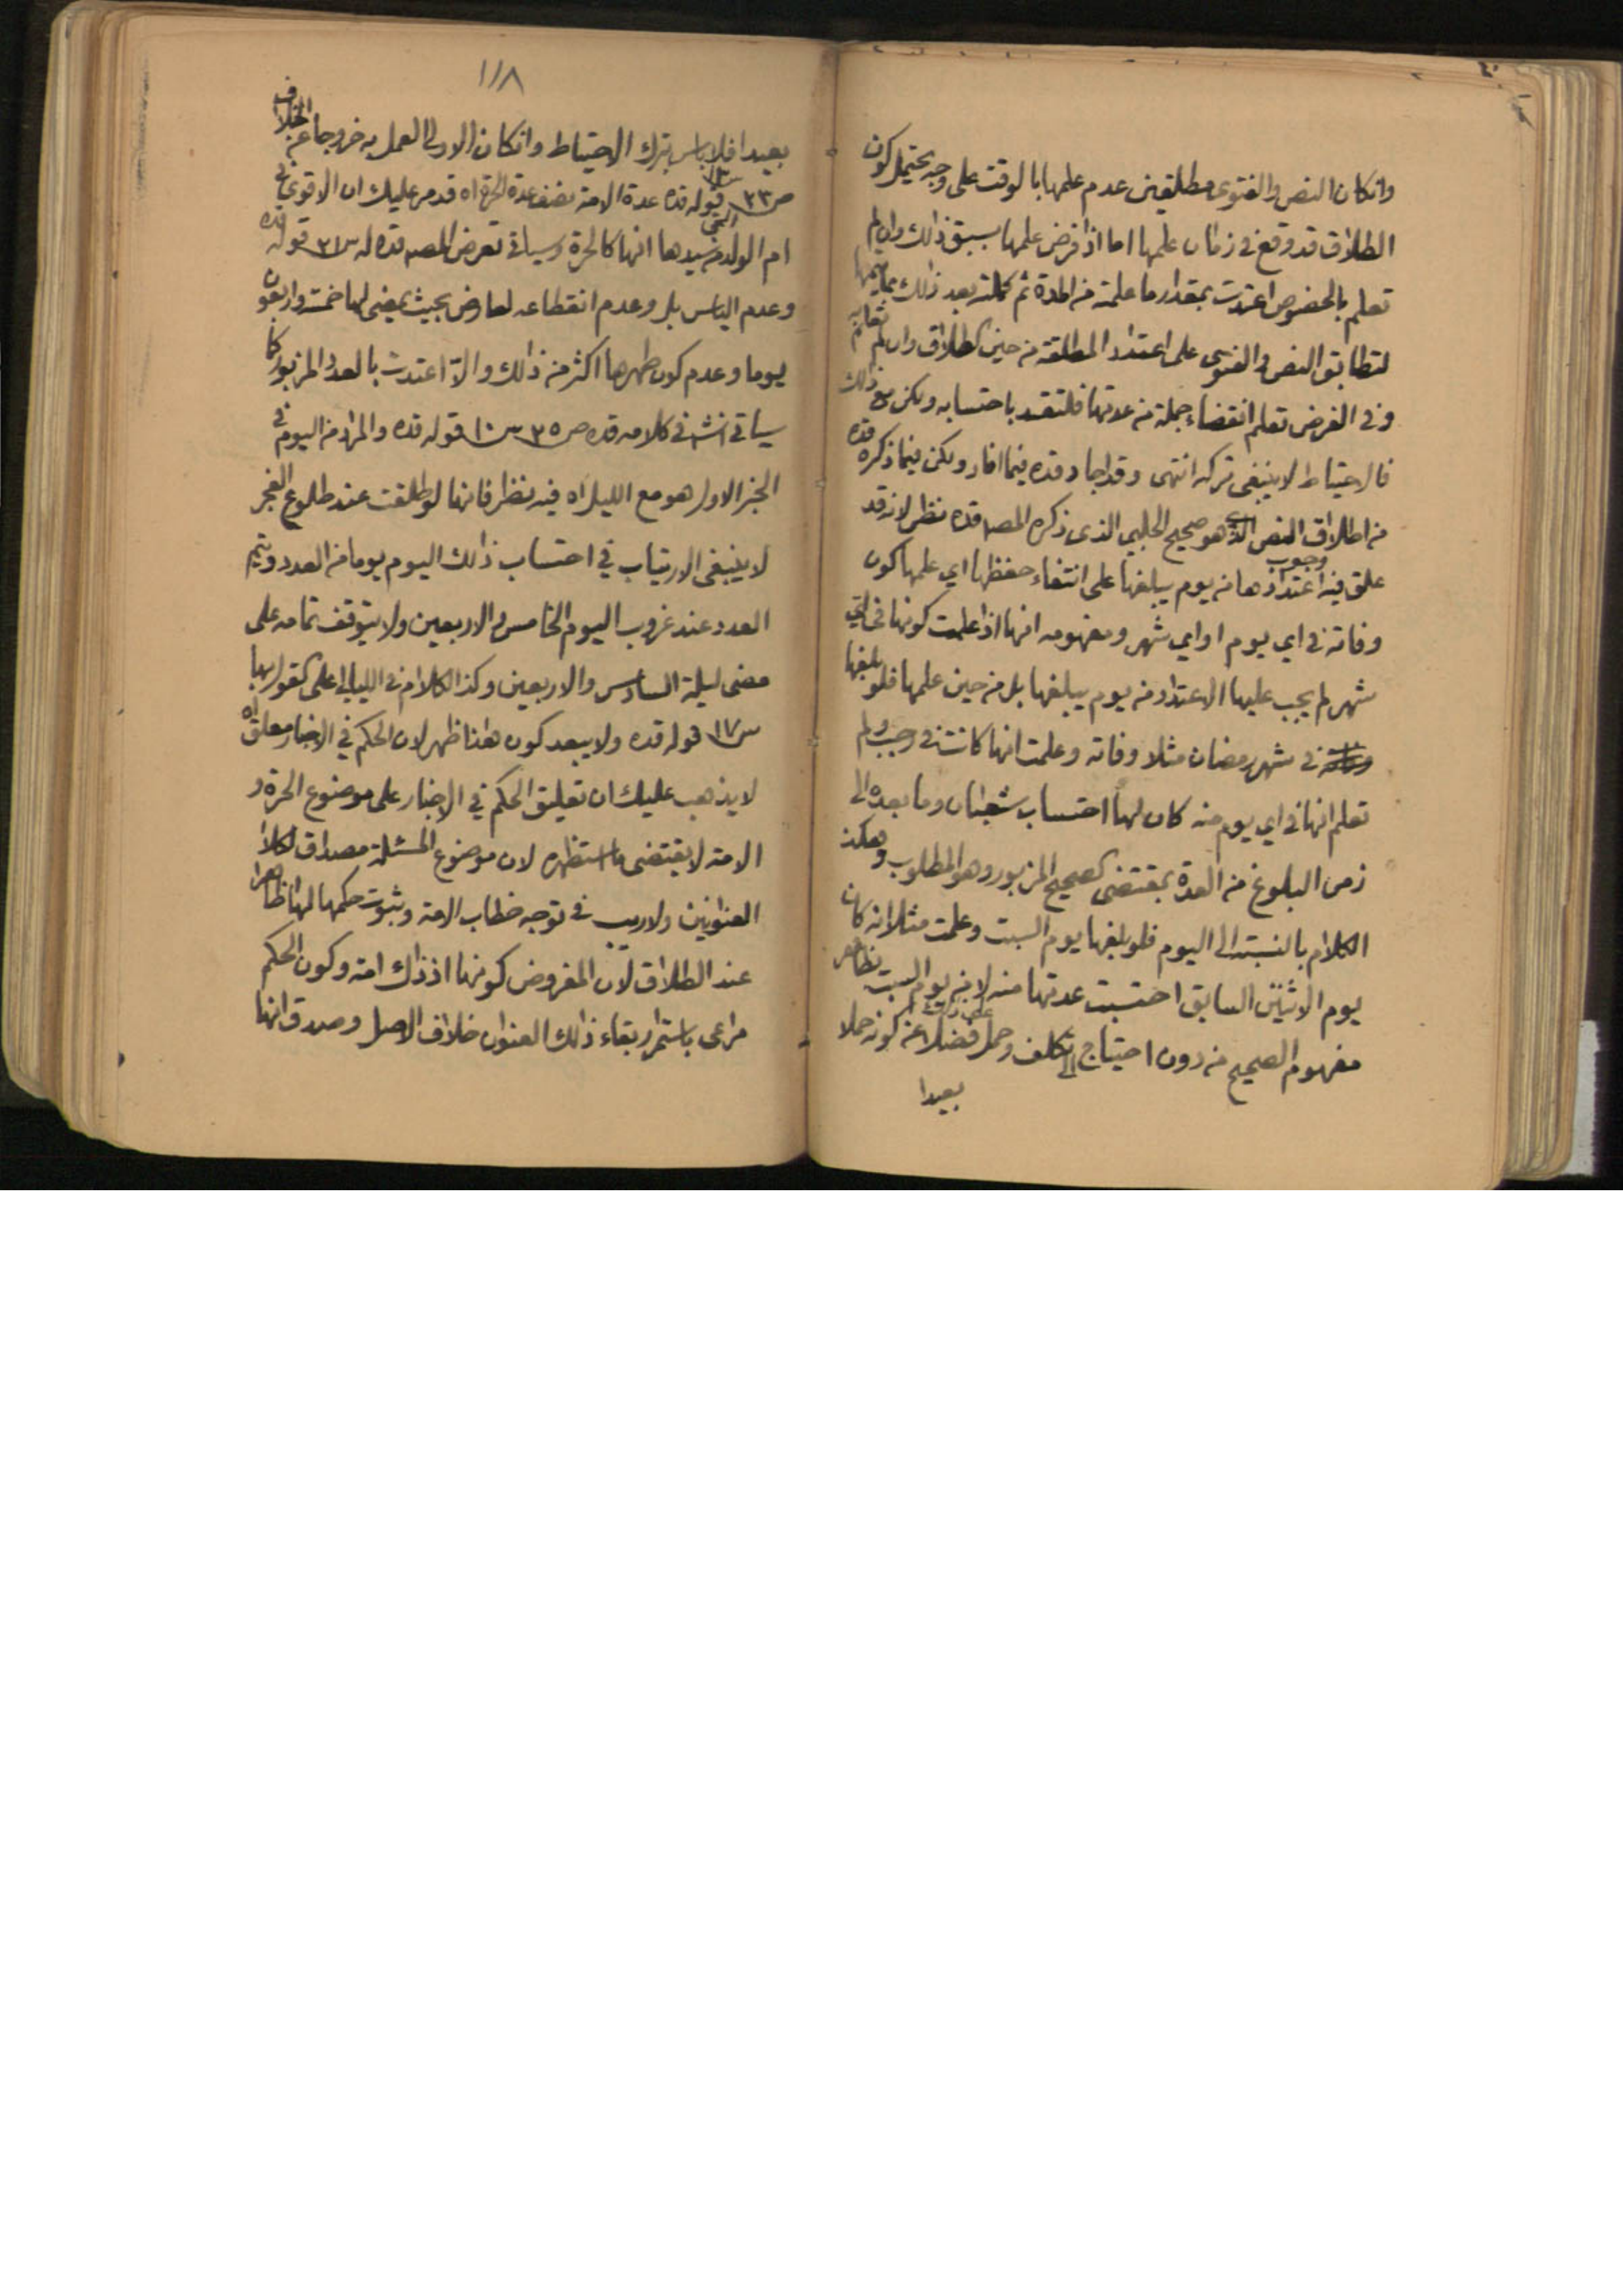 وانكان النص والفتوى مطلقين عدم علمها بالوقت على وجه يحتمل كون
الطلاق قد وقع في زمان علمها اما اذا فرض علمها بسبق ذلك وان لم
تعلم بالخصوص اعتدت بمقدار ما علمته من المدة ثم كملته بعد ذلك بما يتمها
لتطابق النص والفتوى على اعتداد المطلقة من حين الطلاق وان لم تعلم به
وفي الفرض تعلم انقضاء جملة من عدتها فلتعتد باحتسابه ولكن مع ذلك
فالاحتياط لا ينبغي تركه انتهى وقد اجاد قده فيما افاد ولكن فيما ذكره قده
من اطلاق النص الذي هو صحيح الحلبي الذي ذكره المصـ قده نظر لانه قد
علق فيه وجوب اعتدادها من يوم يبلغها على انتفاء حفظها اي علمها كون
وفاته في اي يوم او اي شهر ومفهومه انها اذا علمت كونها في اي
شهر لم يجب عليها الاعتداد من يوم يبلغها بل من حين علمها فلو بلغها
في شهر رمضان مثلا وفاته وعلمت انها كانت في رجب ولم
تعلم انها في اي يوم منه كان لها احتساب شعبان وما بعده الى
زمن البلوغ من العدة بمقتضى الصحيح المزبور وهو المطلوب وهكذا
الكلام بالنسبة الى اليوم فلو بلغها يوم السبت وعلمت مثلا انه كان
يوم الاثنين السابق احتسبت عدتها منه لا من يوم السبت
مفهوم الصحيح من دون احتياج الى تكلف وحمل فضلا عن كونه حملا
بعيدا
١١٨
بعيدا فلا باس بترك الاحتياط وانكان الاولى العمل به خروجا عن الخلاف
ص٢٣ قوله قده عدة الامة نصف عدة الحرة اه قد مر عليك ان الاقوى في
ام الولد من سيدها انها كالحرة وسياتي تعرض المصـ قده له س٢١ قوله قده
وعدم الياس بل وعدم انقطاعه لعارض بحيث يمضى لها خمسة واربعون
يوما وعدم كون طهرها اكثر من ذلك والا اعتدت بالعدد المزبور كما
سياتي انش في كلامه قده ص٣٥ س١٠ قوله قده والمراد من اليوم في
الجزء الاول هو مع الليل اه فيه نظر فانها لو طلقت عند طلوع الفجر
لا ينبغي الارتياب في احتساب ذلك اليوم يوما من العدد ويتم
العدد عند غروب اليوم الخامس والاربعين ولا يتوقف تمامه على
مضى ليلة السادس والاربعين وكذا الكلام في الليالي على القول بها
س١٧ قوله قده ولا يبعد كون هذا ظهر لان الحكم في الاخبار معلق اه
لا يذهب عليك ان تعليق الحكم في الاخبار على موضوع الحرة و
الامة لا يقتضى ما استظهره لان موضوع المسئلة مصداق لكلا
العنوانين ولا ريب في توجه خطاب الامة وثبوت حكمها لها ظاهرا
عند الطلاق لان المفروض كونها اذ ذاك امة وكون الحكم
مراعى باستمرار بقاء ذلك العنوان خلاف الاصل وصدق انها